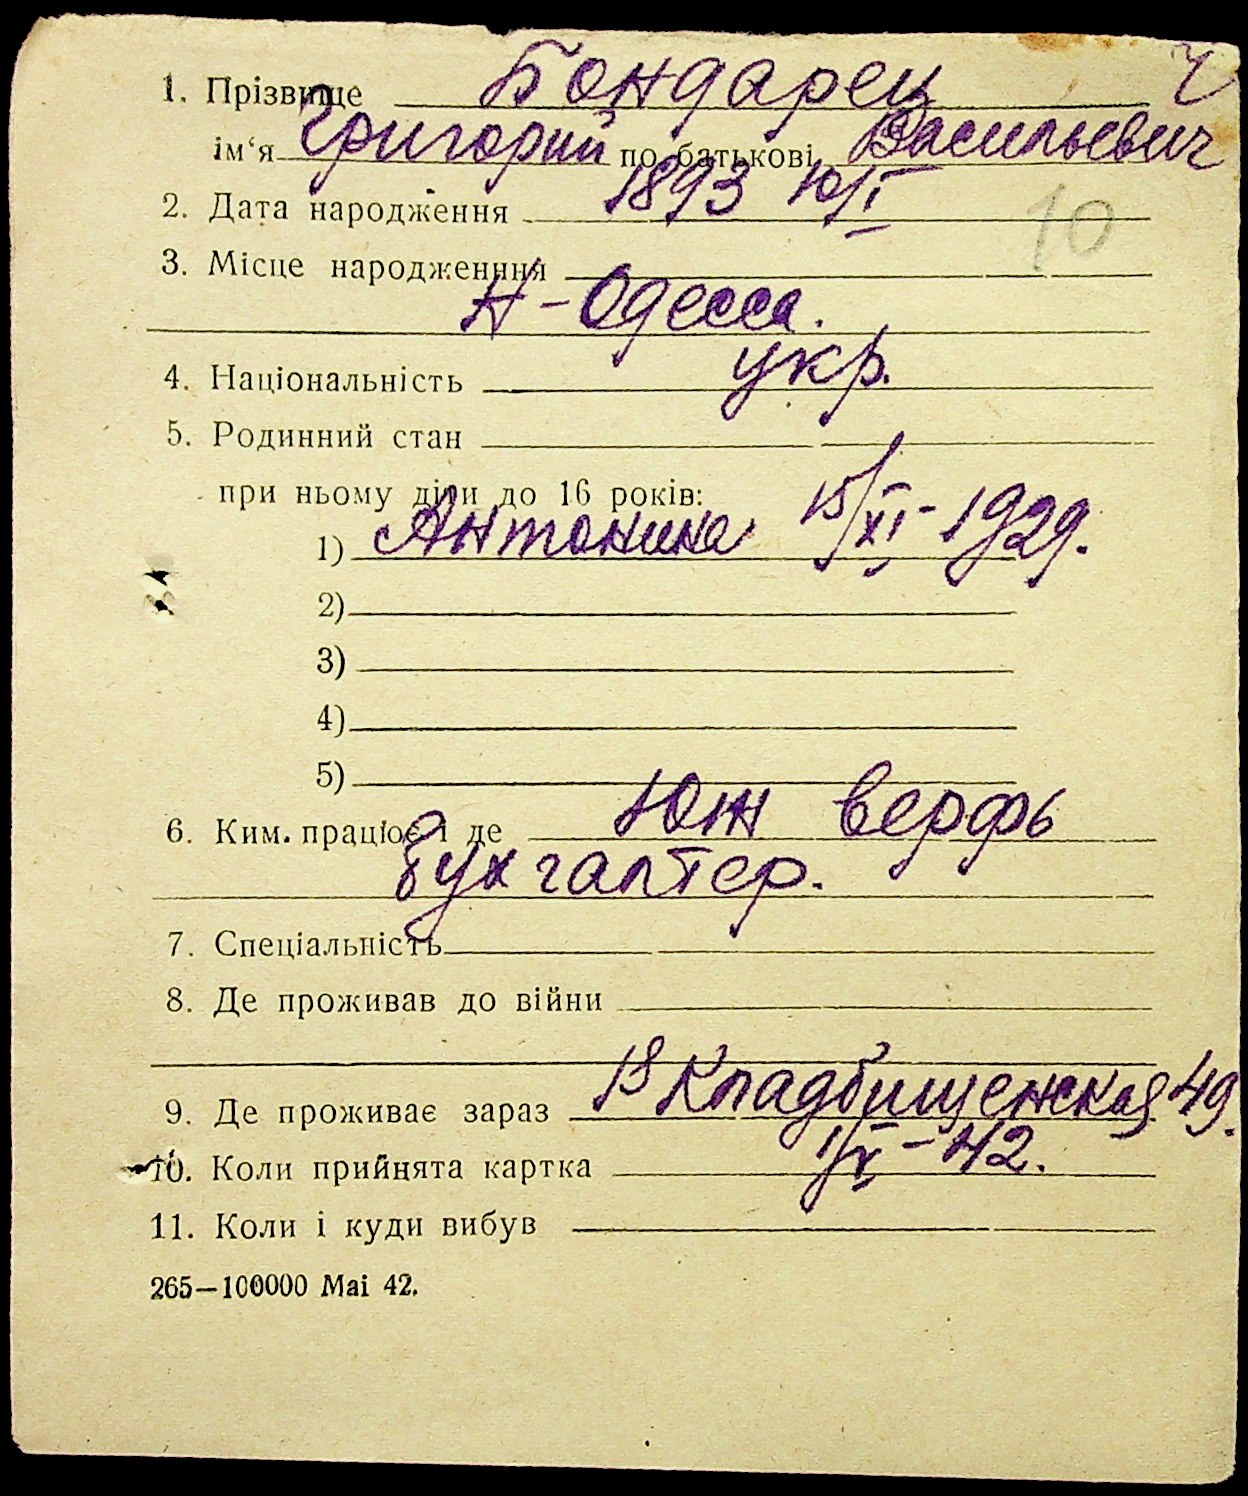 1. Прізвище Бондарец Ч
ім‘я Григорий по батькові Васильевич
2. Дата народження 1893 10/I
10
3. Місце народженння
Н-Одесса.
4. Національність укр.
5. Родинний стан
при ньому діти до 16 років:
1) Антонина 15/XI-1929.
2)
3)
4)
5)
6. Ким працює і де Юж верфь
бухгалтер.
7. Спеціальність
8. Де проживав до війни
9. Де проживає зараз Кладбищенская 49.
10. Коли прийнята картка -42.
11. Коли і куди вибув
265—100000 Mai 42.